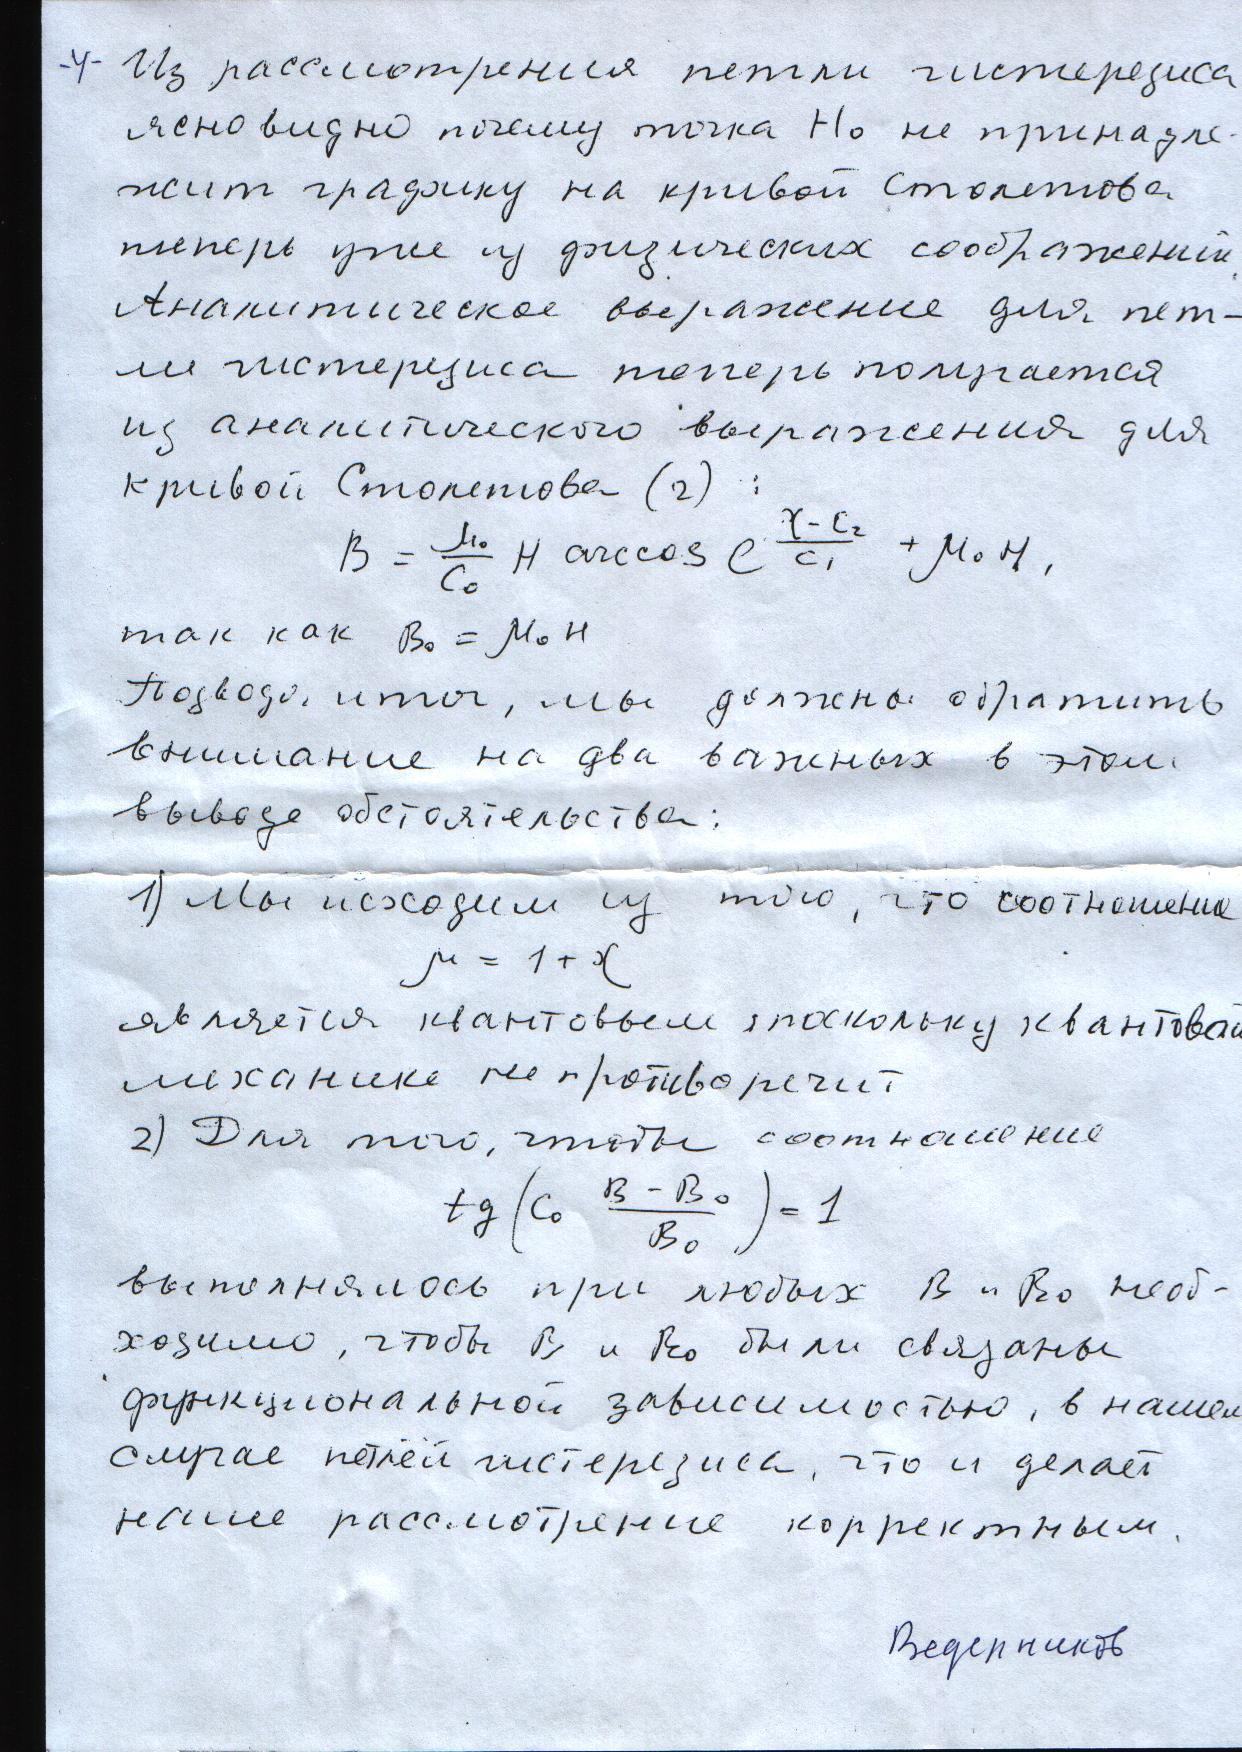 -4- Из рассмотрения петли гистерезиса
ясно видно почему точка H₀ не принадле-
жит графику на кривой Столетова
теперь уже из физических соображений.
Аналитическое выражение для пет-
ли гистерезиса теперь получается
из аналитического выражения для
кривой Столетова (2) :
B = μ₀/C₀ H arccos e^((χ-C₂)/C₁) + μ₀H,
так как B₀ = μ₀H
Подводя итог, мы должны обратить
внимание на два важных в этом
выводе обстоятельства:
1) Мы исходим из того, что соотношение
μ = 1 + χ
является квантовым, поскольку квантовой
механике не противоречит
2) Для того, чтобы соотношение
tg(C₀ (B - B₀)/B₀) = 1
выполнялось при любых B и B₀ необ-
ходимо, чтобы B и B₀ были связаны
функциональной зависимостью, в нашем
случае петлёй гистерезиса, что и делает
наше рассмотрение корректным.
Ведерников